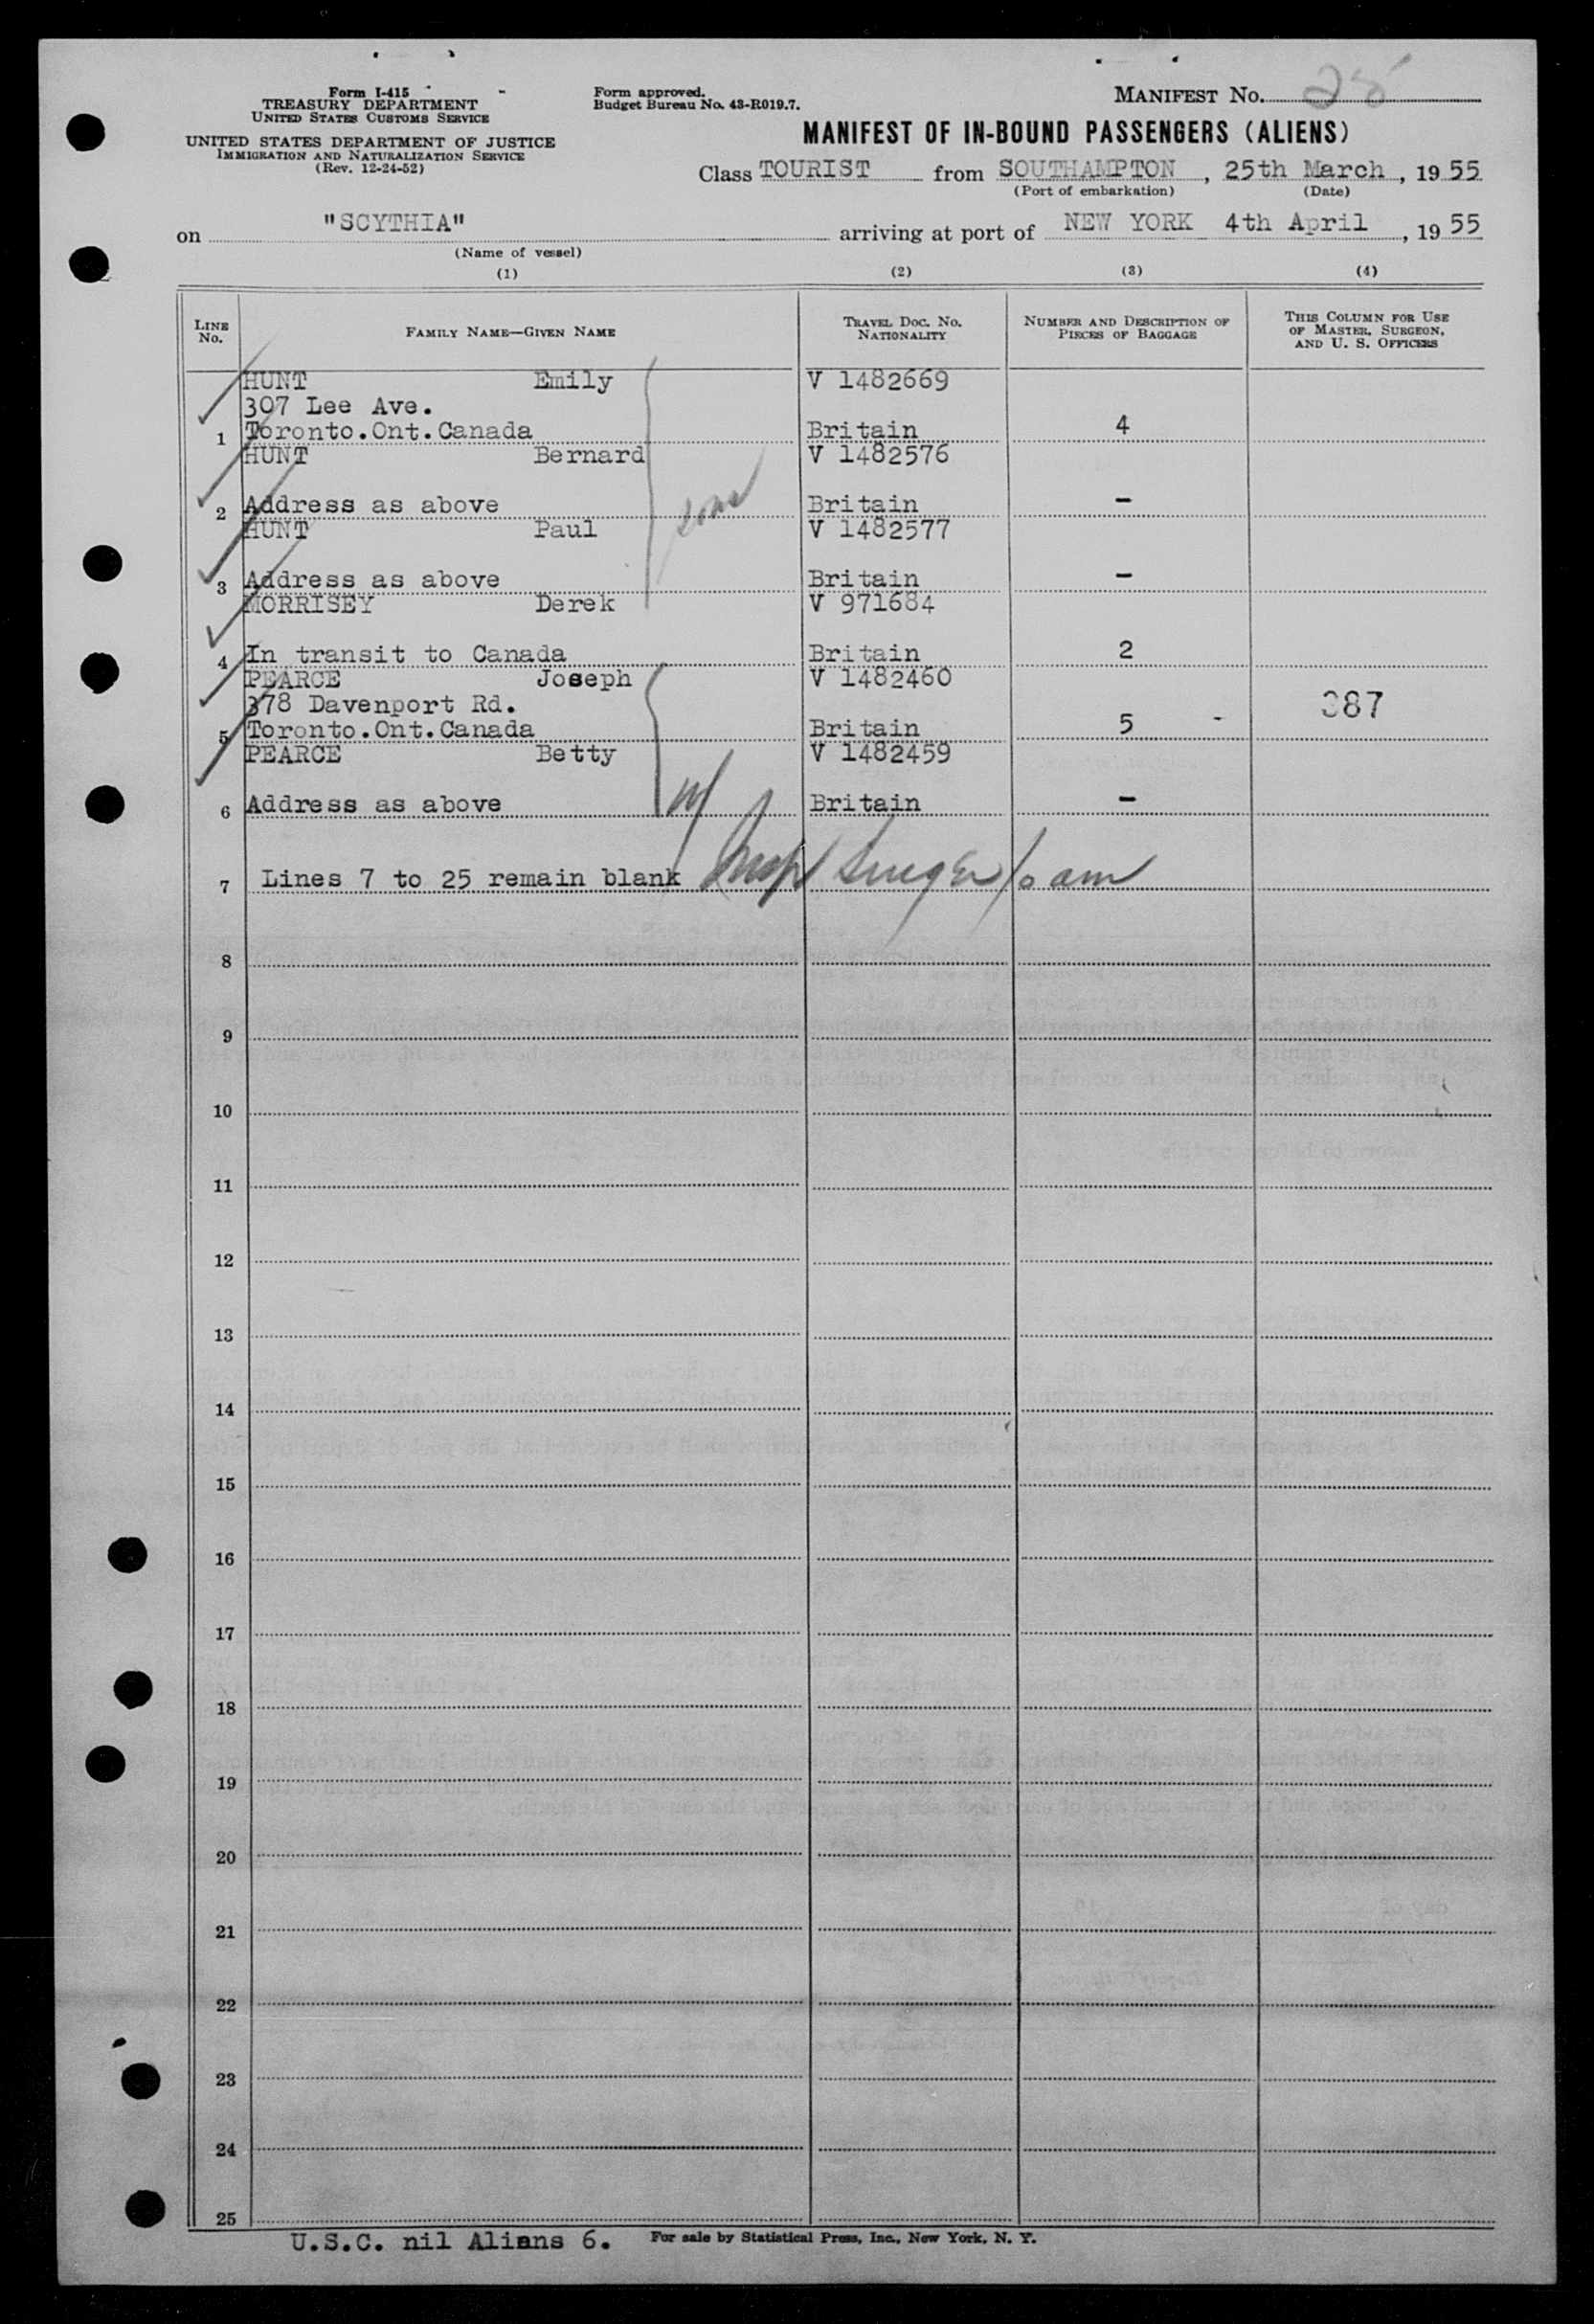 Form I-415
TREASURY DEPARTMENT
UNITED STATES CUSTOMS SERVICE
UNITED STATES DEPARTMENT OF JUSTICE
IMMIGRATION AND NATURALIZATION SERVICE
(Rev. 12-24-52)
Form approved.
Budget Bureau No. 43-R019.7.
MANIFEST No. 25
MANIFEST OF IN-BOUND PASSENGERS (ALIENS)
Class TOURIST from SOUTHAMPTON, 25th March, 1955
(Port of embarkation) (Date)
on "SCYTHIA" arriving at port of NEW YORK 4th April, 1955
(Name of vessel)
(1) (2) (3) (4)
LINE No.
FAMILY NAME—GIVEN NAME
TRAVEL DOC. NO. NATIONALITY
NUMBER AND DESCRIPTION OF PIECES OF BAGGAGE
THIS COLUMN FOR USE OF MASTER, SURGEON, AND U. S. OFFICERS
HUNT Emily V 1482669
307 Lee Ave.
1 Toronto.Ont.Canada Britain 4
HUNT Bernard V 1482576
2 Address as above Britain -
sons
HUNT Paul V 1482577
3 Address as above Britain -
MORRISEY Derek V 971684
4 In transit to Canada Britain 2
PEARCE Joseph V 1482460
378 Davenport Rd. 387
5 Toronto.Ont.Canada Britain 5 -
PEARCE Betty V 1482459
6 Address as above Britain -
w/
7 Lines 7 to 25 remain blank
8
9
10
11
12
13
14
15
16
17
18
19
20
21
22
23
24
25
U.S.C. nil Aliens 6. For sale by Statistical Press, Inc., New York, N. Y.